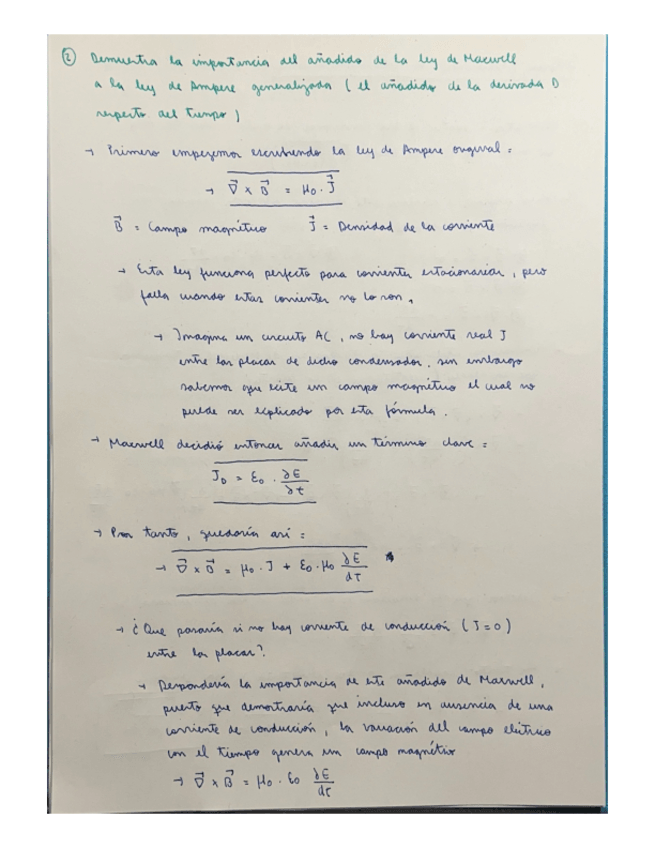 ② Demuestra la importancia del añadido de la ley de Maxwell
a la ley de Ampere generalizada ( el añadido de la derivada D
respecto del tiempo )
→ Primero empezemos escribiendo la ley de Ampere original =
→ ∇⃗ x B⃗ = μ0 · J⃗
B⃗ = Campo magnético J⃗ = Densidad de la corriente
→ Esta ley funciona perfecto para corrientes estacionarias, pero
falla cuando estas corrientes no lo son.
→ Imagina un circuito AC, no hay corriente real J
entre las placas de dicho condensador, sin embargo
sabemos que existe un campo magnético el cual no
puede ser explicado por esta fórmula.
→ Maxwell decidió entonces añadir un término clave =
J_D = ε0 · ∂E/∂t
→ Por tanto, quedaría así =
→ ∇⃗ x B⃗ = μ0 · J + ε0 · μ0 ∂E/dt
→ ¿Que pasaría si no hay corriente de conducción (J=0)
entre las placas?
→ Respondería la importancia de este añadido de Maxwell,
puesto que demostraría que incluso en ausencia de una
corriente de conducción, la variación del campo eléctrico
con el tiempo genera un campo magnético
→ ∇⃗ x B⃗ = μ0 · ε0 ∂E/dt